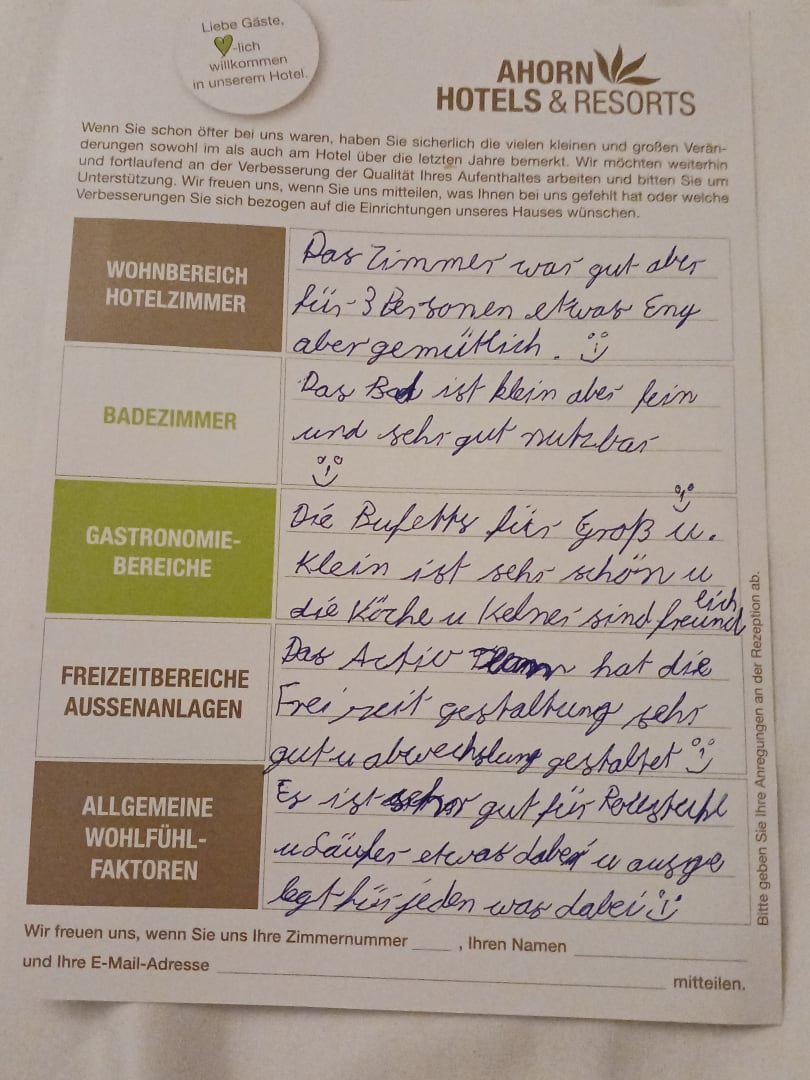 Liebe Gäste,
-lich
willkommen
in unserem Hotel.
AHORN
HOTELS & RESORTS
Wenn Sie schon öfter bei uns waren, haben Sie sicherlich die vielen kleinen und großen Verän-
derungen sowohl im als auch am Hotel über die letzten Jahre bemerkt. Wir möchten weiterhin
und fortlaufend an der Verbesserung der Qualität Ihres Aufenthaltes arbeiten und bitten Sie um
Unterstützung. Wir freuen uns, wenn Sie uns mitteilen, was Ihnen bei uns gefehlt hat oder welche
Verbesserungen Sie sich bezogen auf die Einrichtungen unseres Hauses wünschen.
WOHNBEREICH
HOTELZIMMER
Das Zimmer war gut aber
für 3 Personen etwas Eng
aber gemütlich.
BADEZIMMER
Das Bad ist klein aber fein
und sehr gut nutzbar
GASTRONOMIE-
BEREICHE
Die Bufetts für Groß u.
Klein ist sehr schön u
die Köche u Kelner sind freundlich
FREIZEITBEREICHE
AUSSENANLAGEN
Das Activ Team hat die
Freizeit gestaltung sehr
gut u abwechslung gestaltet
ALLGEMEINE
WOHLFÜHL-
FAKTOREN
Es ist sehr gut für Rollstuhl
u etwas dabei u ausge
legt für jeden was dabei
Wir freuen uns, wenn Sie uns Ihre Zimmernummer ____ , Ihren Namen
und Ihre E-Mail-Adresse mitteilen.
Bitte geben Sie Ihre Anregungen an der Rezeption ab.